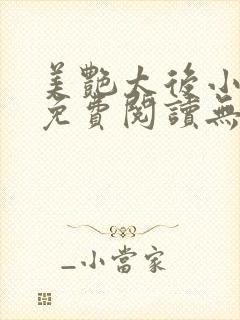 美艷太後小
免費閱讀無
_小當家